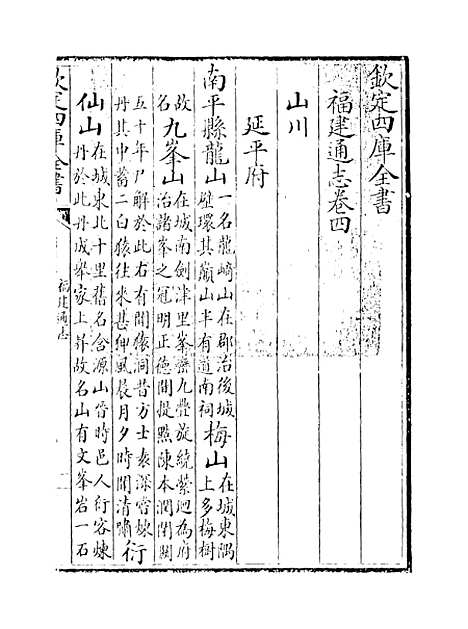 欽定四庫全書
福建通志卷四
山川
延平府
南平縣龍山一名龍𡺸山在郡治後城雉環其巔山半有道南祠梅山在城東隅上多梅樹
故名九峯山在城南劍津里峯巒九疊旋繞縈迴為府治諸峯之冠明正德間提㸃陳本潤閉關
五十年尸解於此右有聞猿洞昔方士袁深嘗煉丹其中蓄二白猿往來甚紳風晨月夕時聞清嘯衍
仙山在城東北十里舊名含源山晉時邑人衍客煉丹於此丹成舉家上昇故名山有文峯岩一石
欽定四庫全書
福建通志